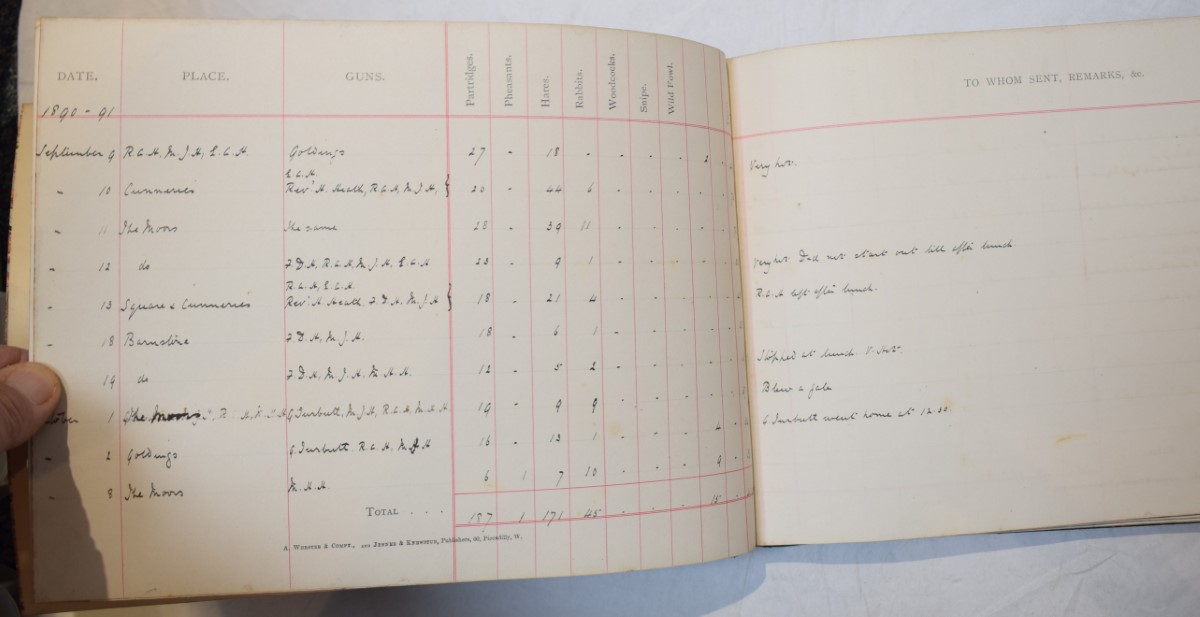 DATE. PLACE. GUNS. Partridges. Pheasants. Hares. Rabbits. Woodcocks. Snipe. Wild Fowl. TO WHOM SENT, REMARKS, &c.
1890-91
September 9 R.G.H, M.J.H, E.G.H. Goldings 27 - 18 - - - - 2 - Very hot.
E.G.H.
" 10 Cunneries Revd. H. Heath, R.G.H, M.J.H, } 20 - 44 6 - - - -
" 11 The Moors the same 28 - 39 11 - - - -
" 12 do F.D.H, R.G.H, M.J.H, E.G.H 23 - 9 1 - - - - Very hot Did not start out till after lunch
R.G.H, E.G.H.
" 13 Square & Cunneries Revd. H. Heath, F.D.H, M.J.H } 18 - 21 4 - - - - R.G.H left after lunch.
" 18 F.D.H, M.J.H. 18 - 6 1 - - - -
" 19 do F.D.H, M.J.H, M.H.H. 12 - 5 2 - - - - Stopped at lunch. V. Hot.
1 The G Turbutt, M.J.H, R.G.H, M.H.H 19 - 9 9 - - - - Blew a gale
" 2 Goldings G. Turbutt, R.G.H, M.J.H 16 - 13 1 - - - 4 - G Turbutt went home at 12:30.
" 8 The Moors M.H.H. 6 1 7 10 - - - 9 -
TOTAL . . . 187 1 171 45 - - - 15 -
A. WEBSTER & COMPY., AND Publishers, 60, Piccadilly, W.